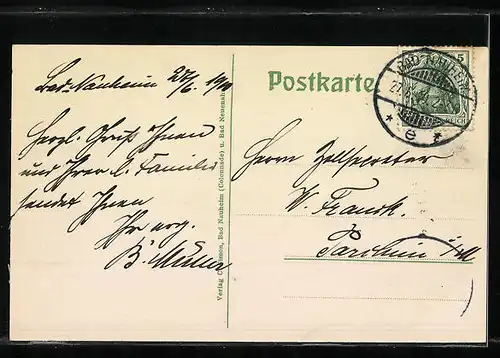 Bad-Nauheim 27/6. 19
Herzl. Gruß Ihnen
und Ihrer l. Familie
sendet Ihnen
Ihr erg.
B. Müller
Verlag Bad Nauheim (Colonnade) u. Bad Neuenahr
Postkarte
5
REICH
Herrn Zollsecretär
W. Franck.
Parchim i/M